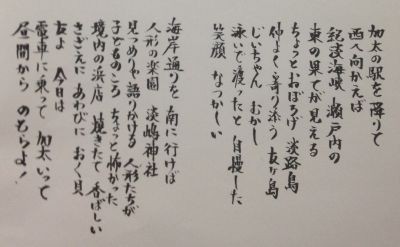 加太の駅を降りて
西へ向かえば
紀淡海峡 瀬戸内の
東の果てが見える
ちょっとおぼろげ 淡路島
仲よく寄り添う 友ヶ島
じいちゃん むかし
泳いで渡ったと 自慢した
笑顔 なつかしい
海岸通りを 南に行けば
人形の楽園 淡嶋神社
見つめりゃ語りかける 人形たちが
子どものころ ちょっと怖かった
境内の浜店 焼きたて 香ばしい
さざえに あわびに おく貝
友よ 今日は
電車に乗って 加太いって
昼間から のもうよ!